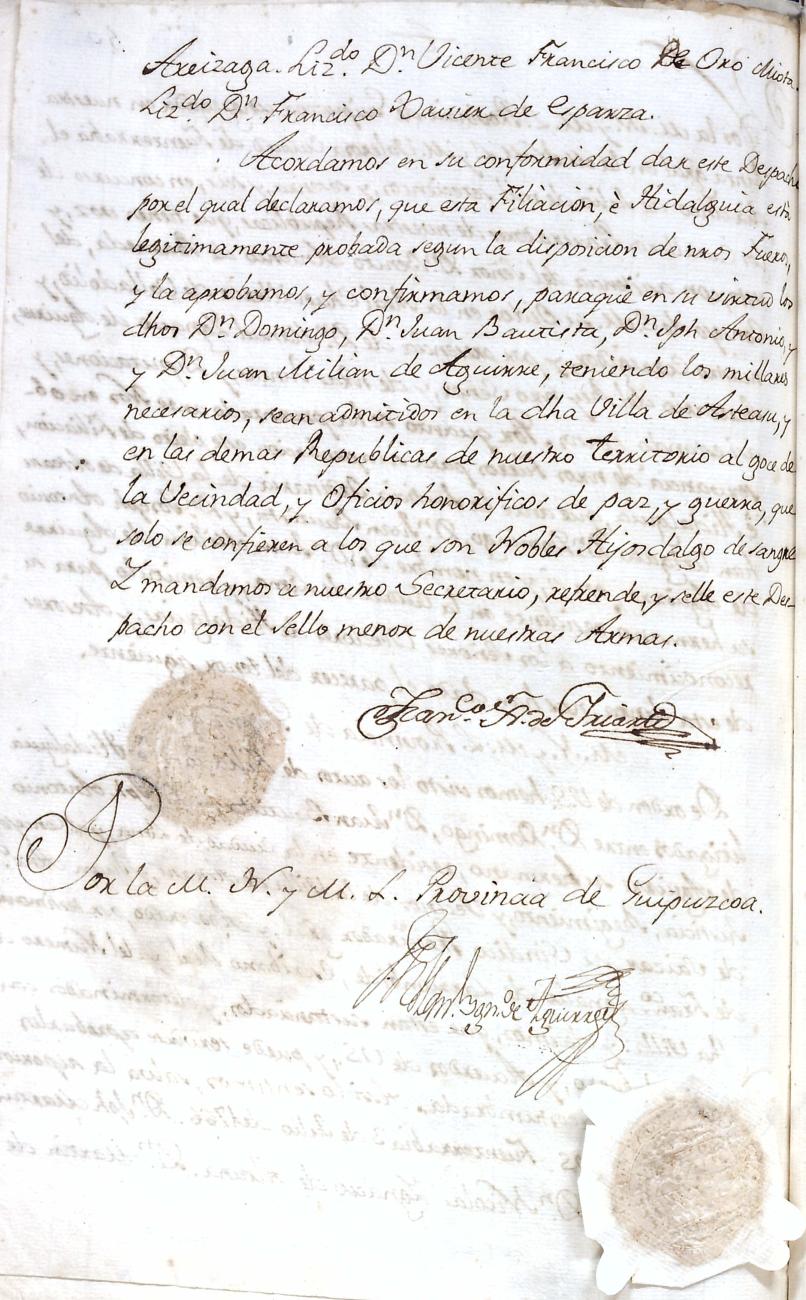 Areizaga. Lizdo. Dn Vicente Francisco De Oro Miota.
Lizdo Dn Francisco Xavier de Esparza.
Acordamos en su conformidad dar este Despacho
por el qual declaramos, que esta Filiacion, è Hidalguia està
legitimamente probada segun la disposicion de nros Fueros,
y la aprobamos, y confirmamos, paraque en su virtud los
dhos Dn Domingo, Dn Juan Bautista, Dn Jph Antonio, y
y Dn Juan Milian de Aguirre, teniendo los millares
necesarios, sean admitidos en la dha Villa de Asteasu, y
en las demas Republicas de nuestro territorio al goce de
la Vecindad, y Oficios honorificos de paz, y guerra, que
solo se confieren a los que son Nobles Hijosdalgo de sangre
Y mandamos a nuestro Secretario, refrende, y selle este Des-
pacho con el sello menor de nuestras Armas.
Franco. de Iriarte
Por la M. N. y M. L. Provincia de Guipuzcoa.
de Aguirre